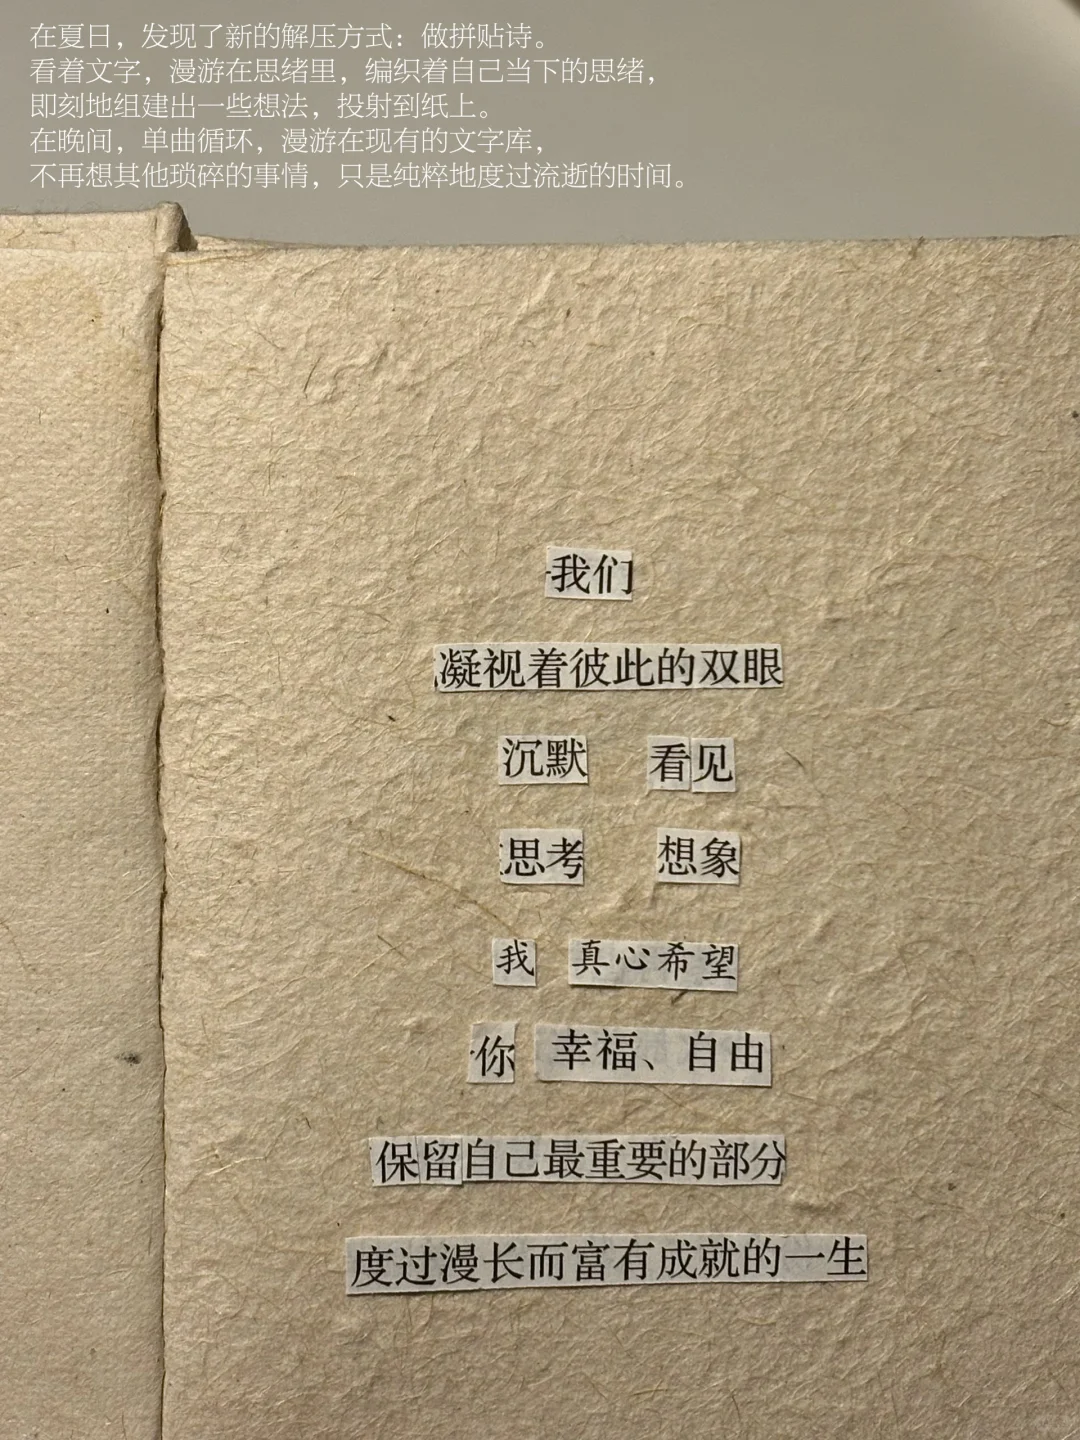 在夏日，发现了新的解压方式：做拼贴诗。
看着文字，漫游在思绪里，编织着自己当下的思绪，
即刻地组建出一些想法，投射到纸上。
在晚间，单曲循环，漫游在现有的文字库，
不再想其他琐碎的事情，只是纯粹地度过流逝的时间。
我们
凝视着彼此的双眼
沉默 看见
思考 想象
我 真心希望
你 幸福、自由
保留自己最重要的部分
度过漫长而富有成就的一生